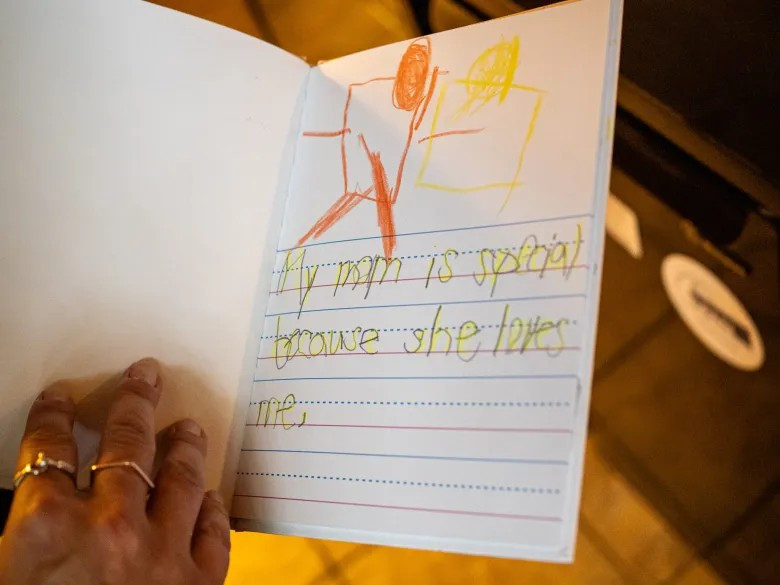 My mom is special
because she loves
me,